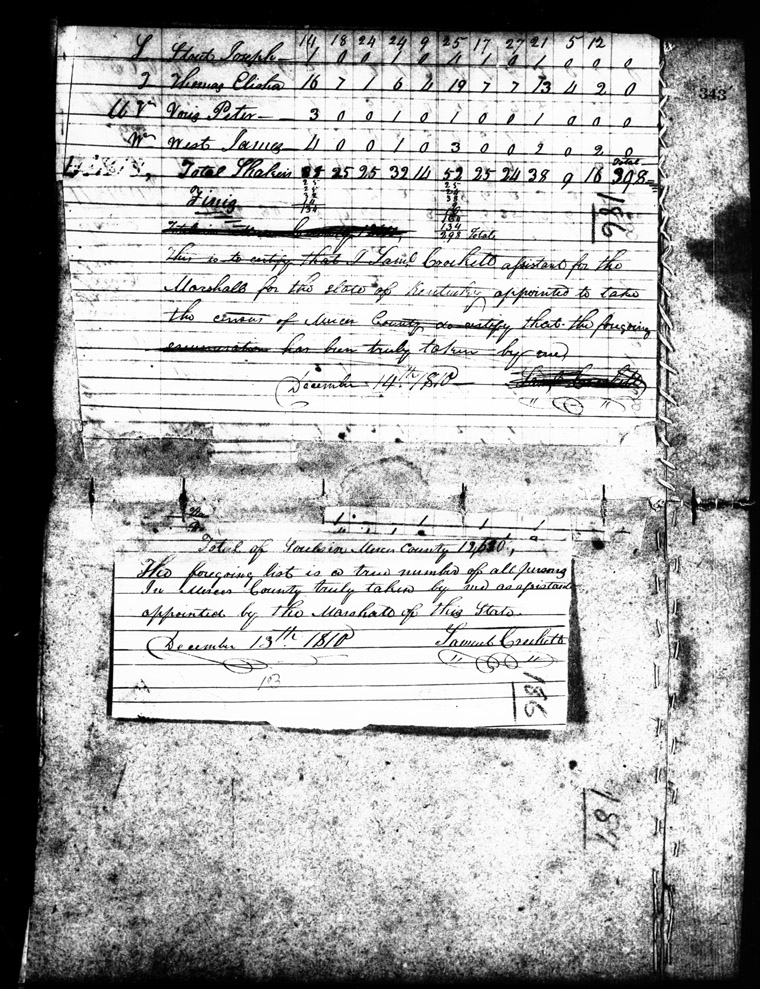 14 18 24 24 9 25 17 27 21 5 12
S Stout Joseph 1 0 0 1 0 4 1 0 1 0 0 0
T Thomas Elisha 16 7 1 6 4 19 7 7 13 4 2 0
343
Voris Peter 3 0 0 1 0 1 0 0 1 0 0 0
W West James 4 0 0 1 0 3 0 0 2 0 2 0
Total Shakers 25 25 32 14 52 25 24 38 9 16 Total
298
Finis
25
32
14
134
25
24
38
164
134
298 Total
186
This is to certify that I Saml. Crockett assistant for the
Marshall for the state of Kentucky appointed to take
the census of Mercer County do certify that the foregoing
enumeration has been truly taken by me
December 14th 1810 Saml Crockett
Total of Souls in Mercer County
The foregoing list is a true number of all persons
In Mercer County truly taken by me assistant
appointed by the Marshall of this State.
December 13th 1810 Samuel Crockett
186
187